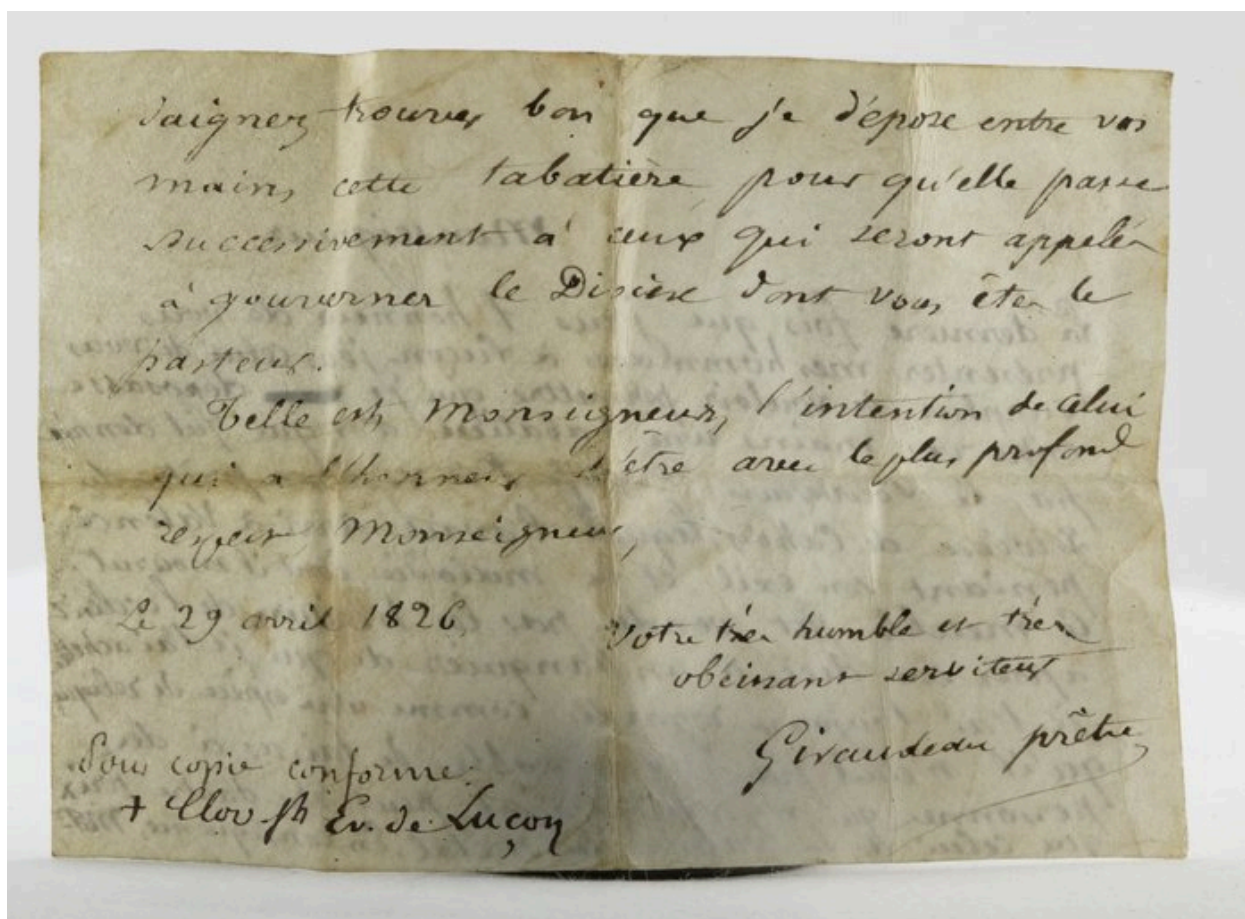 Daignez trouver bon que je dépose entre vos
mains, cette tabatière, pour qu'elle passe
successivement à ceux qui seront appelés
à gouverner le Diocèse dont vous êtes le
pasteur.
Telle est, Monseigneur, l'intention de celui
qui a l'honneur d'être avec le plus profond
respect, Monseigneur,
Le 29 avril 1826,
votre très humble et très
obéissant serviteur
Giraudeau prêtre
Pour copie conforme.
+ Clov. Jh Ev. de Luçon